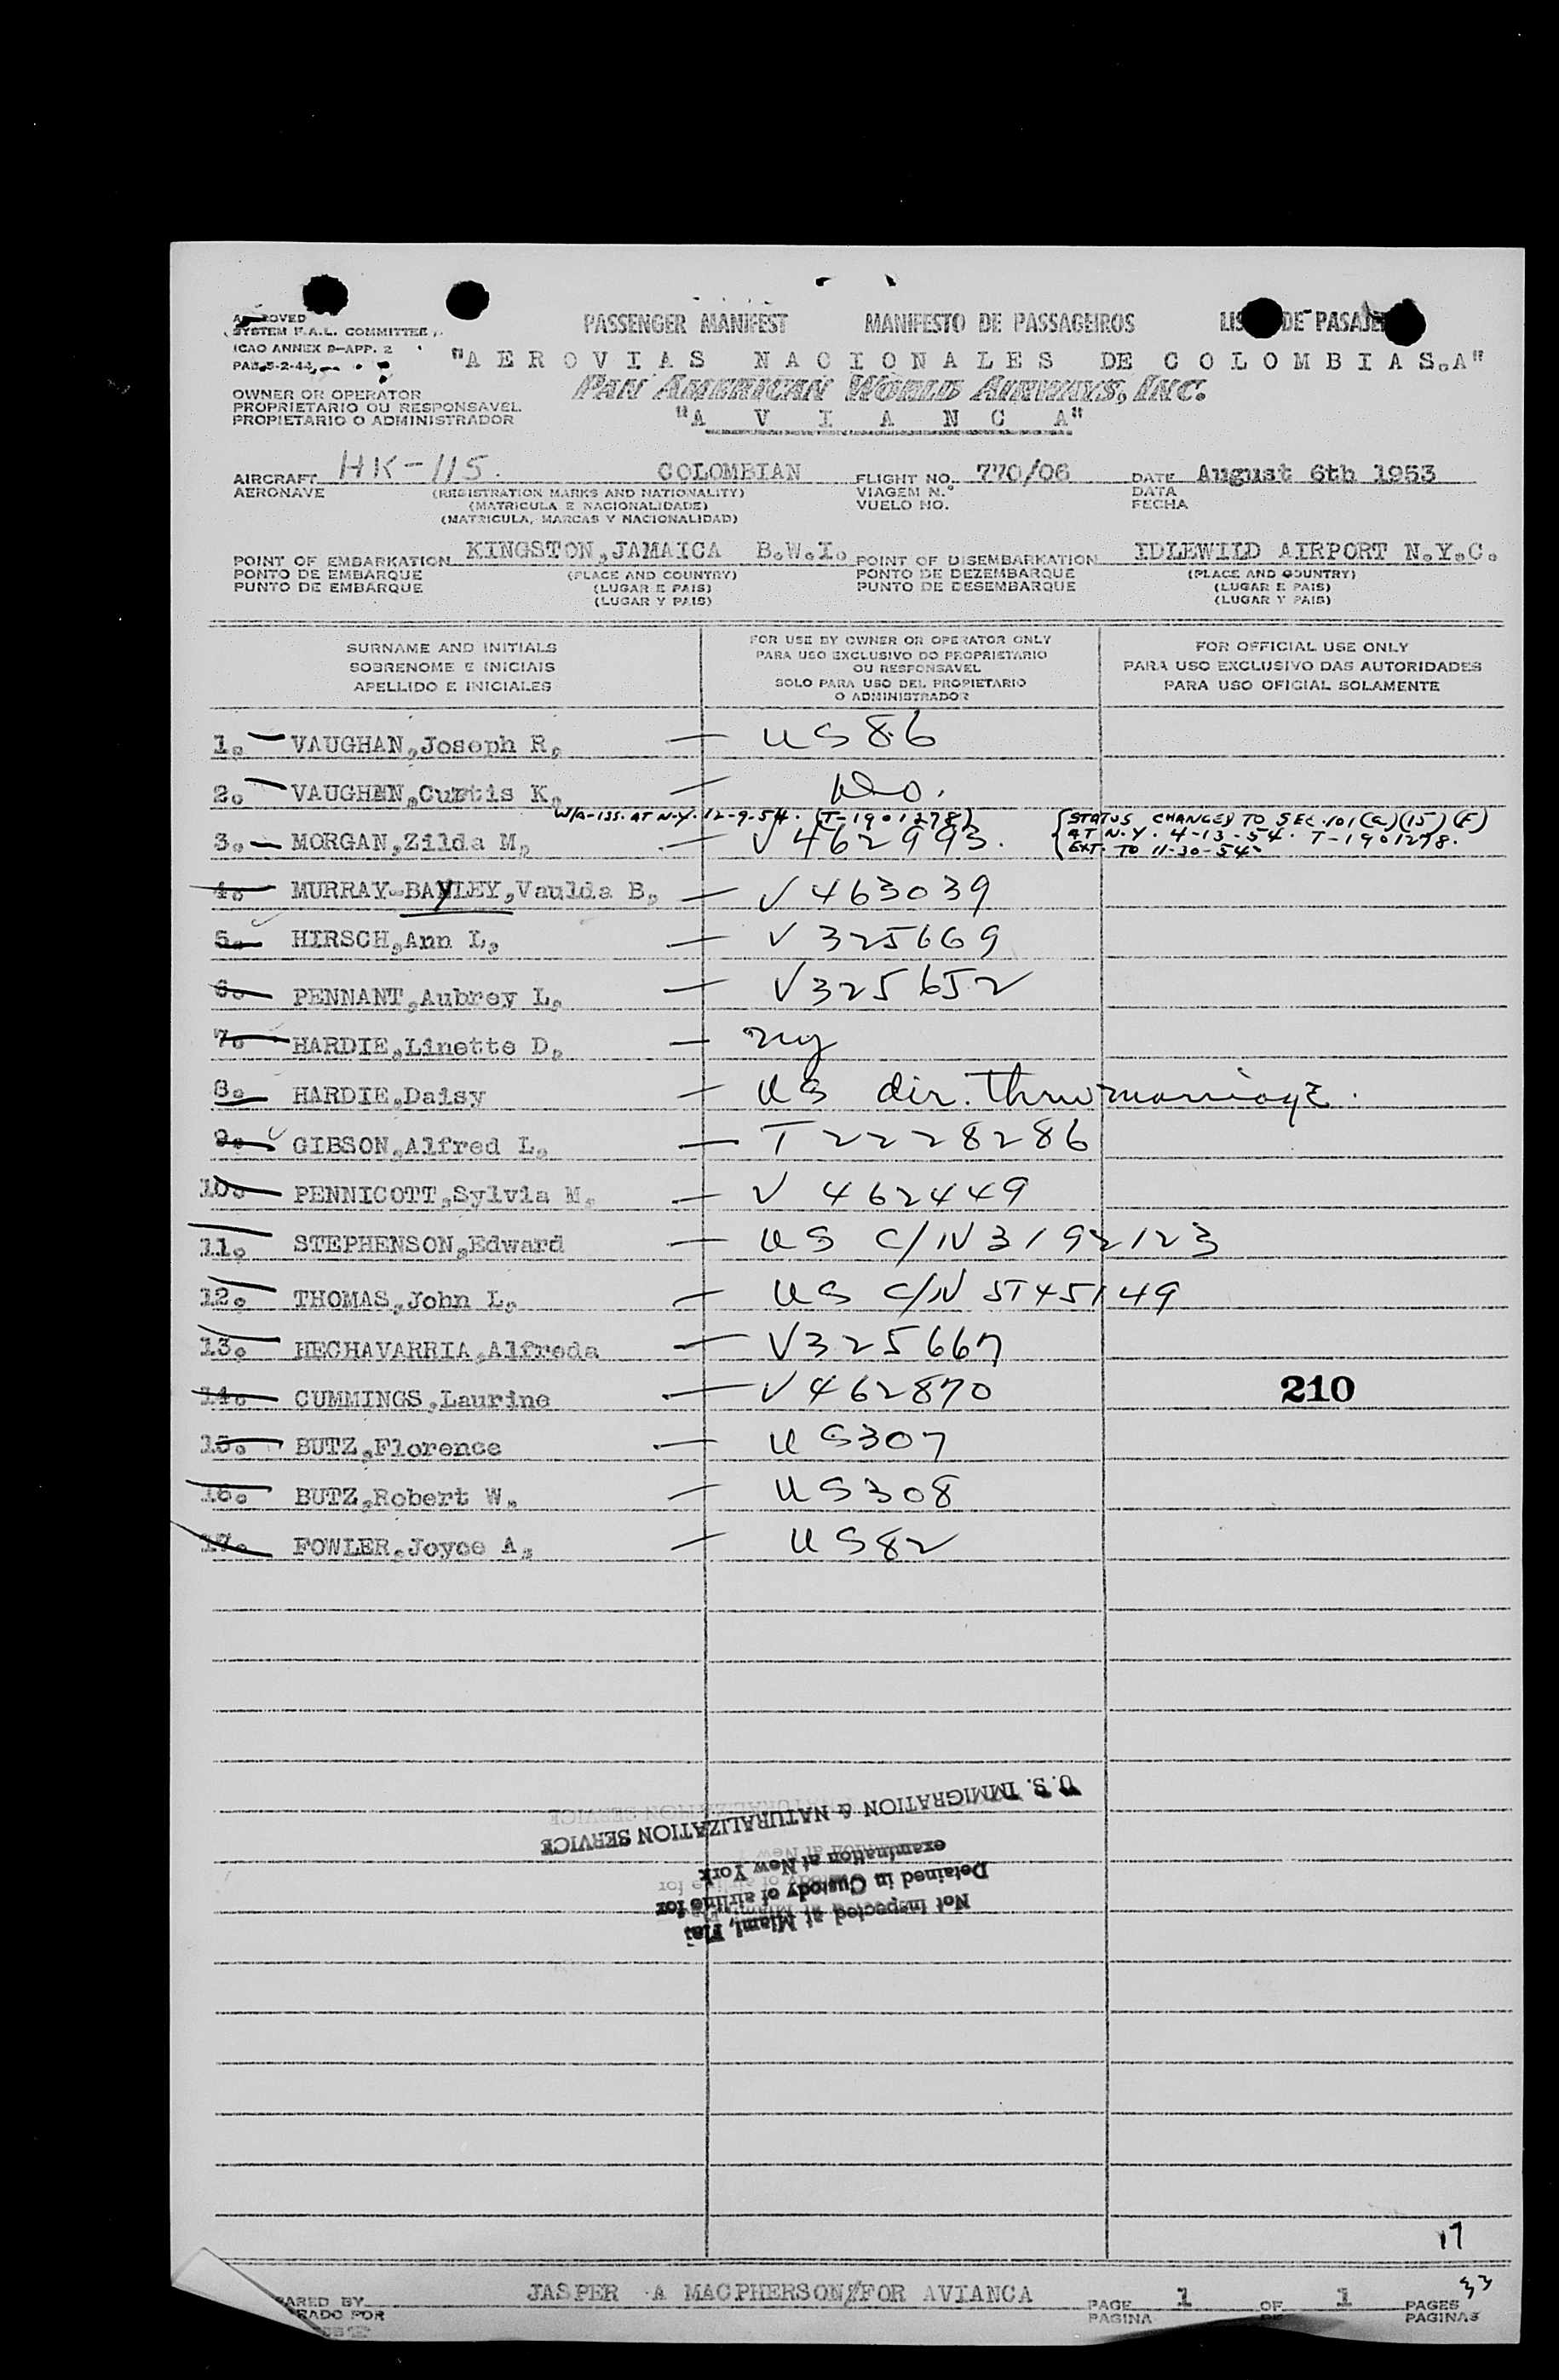 APPROVED
SYSTEM F.A.L. COMMITTEE
ICAO ANNEX 9-APP. 2
PASSENGER MANIFEST MANIFESTO DE PASSAGEIROS LIS DE PASAJE
"AEROVIAS NACIONALES DE COLOMBIA S.A"
PAN AMERICAN WORLD AIRWAYS, INC.
"A V I A N C A"
OWNER OR OPERATOR
PROPRIETARIO OU RESPONSAVEL
PROPIETARIO O ADMINISTRADOR
AIRCRAFT HK-115. COLOMBIAN FLIGHT NO. 770/06 DATE August 6th 1953
AERONAVE (REGISTRATION MARKS AND NATIONALITY) VIAGEM N.° DATA
(MATRICULA E NACIONALIDADE) VUELO NO. FECHA
(MATRICULA, MARCAS Y NACIONALIDAD)
POINT OF EMBARKATION KINGSTON,JAMAICA B.W.I. POINT OF DISEMBARKATION IDLEWILD AIRPORT N.Y.C.
PONTO DE EMBARQUE (PLACE AND COUNTRY) PONTO DE DEZEMBARQUE (PLACE AND COUNTRY)
PUNTO DE EMBARQUE (LUGAR E PAIS) PUNTO DE DESEMBARQUE (LUGAR E PAIS)
(LUGAR Y PAIS) (LUGAR Y PAIS)
SURNAME AND INITIALS
SOBRENOME E INICIAIS
APELLIDO E INICIALES
FOR USE BY OWNER OR OPERATOR ONLY
PARA USO EXCLUSIVO DO PROPRIETARIO
OU RESPONSAVEL
SOLO PARA USO DEL PROPIETARIO
O ADMINISTRADOR
FOR OFFICIAL USE ONLY
PARA USO EXCLUSIVO DAS AUTORIDADES
PARA USO OFICIAL SOLAMENTE
1. VAUGHAN,Joseph R. — US 86
2. VAUGHAN,Curtis K. — Do.
W/A-ISS. AT N.Y. 12-9-54. (T-1901278) {STATUS CHANGED TO SEC.101(a)(15)(F)
3. MORGAN,Zilda M. — V 462993. AT N.Y. 4-13-54. T-1901278.
EXT. TO 11-30-54.
4. MURRAY-BAYLEY,Vaulda B. — V 463039
5. HIRSCH,Ann L. — V 325669
6. PENNANT,Aubrey L. — V325652
7. HARDIE,Linette D. —
8. HARDIE,Daisy — US dir. thru marriage.
9. GIBSON,Alfred L. — T2228286
10. PENNICOTT,Sylvia M. — V 462449
11. STEPHENSON,Edward — US C/N 3192123
12. THOMAS,John L. — US C/N 5745149
13. HECHAVARRIA,Alfreda — V325667
14. CUMMINGS,Laurine — V462870
210
15. BUTZ,Florence — US307
16. BUTZ,Robert W. — US308
17. FOWLER,Joyce A. — US82
Not inspected at Miami, Fla.
Detained in Custody of airline for
examination at New York
U.S. IMMIGRATION & NATURALIZATION SERVICE
17
33
ARED BY JASPER A MACPHERSON/FOR AVIANCA PAGE 1 OF 1 PAGES
RADO POR PAGINA DE PAGINAS